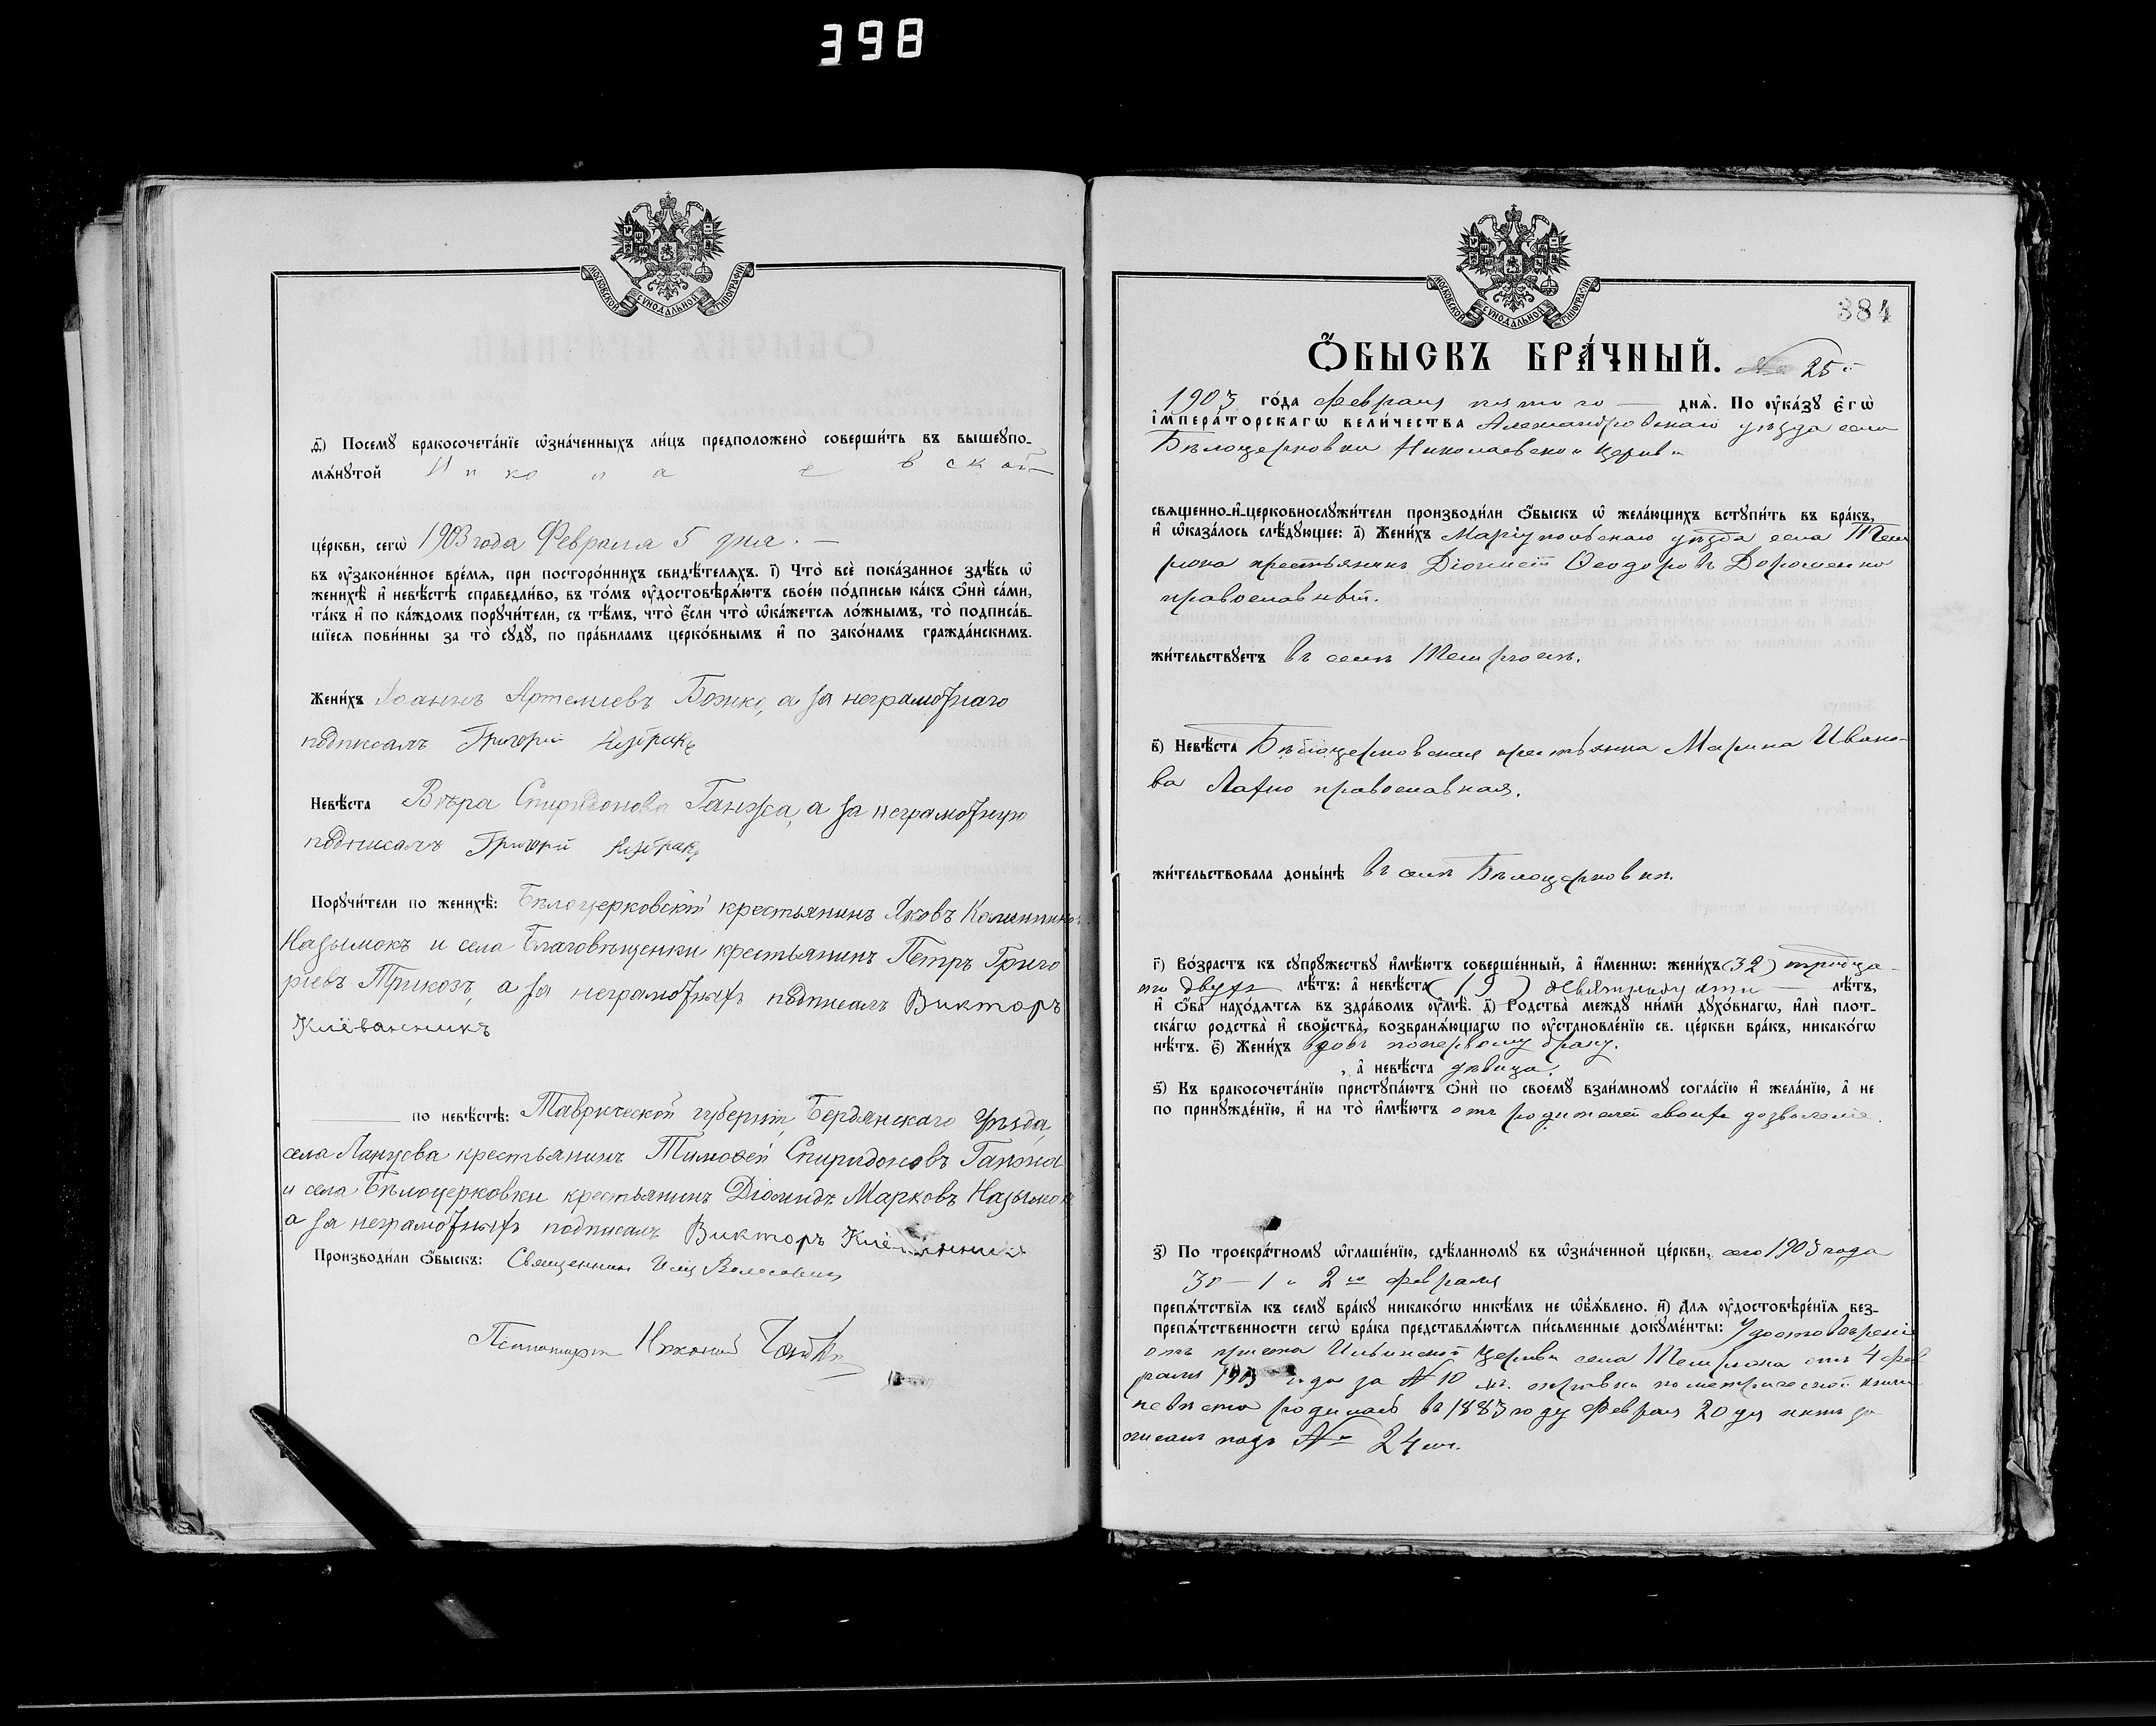 398
МОСКОВСКОЙ СѴНОДАЛЬНОЙ ТИПОГРАФІИ
д҃) Посемꙋ бракосочета́нїе ѡ҆зна́ченныхъ ли́цъ предположено̀ соверши́ть въ вышеꙋпо-
мѧ́нꙋтой Николаевской
це́ркви, сегѡ̀ 1903 года Февраля 5 дня. —
въ ᲂу҆законе́нное вре́мѧ, при посторо́ннихъ свидѣ́телѧхъ. і҃) Что̀ всѐ пока́занное здѣ́сь ѡ҆
женихѣ̀ и҆ невѣ́стѣ справедли́во, въ то́мъ ᲂу҆достовѣрѧ́ютъ свое́ю по́дписью ка́къ ѻ҆нѝ са́ми,
та́къ и҆ по ка́ждомъ порꙋчи́тели, съ тѣ́мъ, что̀ є҆́сли что̀ ѡ҆ка́жетсѧ ло́жнымъ, то̀ подписа́в-
шїесѧ пови́нны за то̀ сꙋдꙋ̀, по пра́виламъ церко́внымъ и҆ по зако́намъ гражда́нскимъ.
Жени́хъ Іоаннъ Артемиевъ Божко, а за неграмотнаго
подписалъ Григорій
Невѣ́ста Вѣра Спиридонова Ганжа, а за неграмотную
подписалъ Григорій
Порꙋчи́тели по женихѣ̀: Бѣлоцерковскій крестьянинъ Яковъ Калинниковъ
Назымокъ и села Благовѣщенки крестьянинъ Петръ Григо
ріевъ Трикозъ, а за неграмотныхъ подписалъ Викторъ
Киёванникъ
по невѣ́стѣ: Таврической губерніи, Бердянскаго уѣзда,
села крестьянинъ Тимофей Спиридоновъ Ганжа
и села Бѣлоцерковки крестьянинъ Діомидъ Марковъ Назымокъ
а за неграмотныхъ подписалъ Викторъ Киёванникъ
Производи́ли ѻ҆́быскъ: Священникъ
Псаломщикъ
МОСКОВСКОЙ СѴНОДАЛЬНОЙ ТИПОГРАФІИ
384
Ѻ҆́БЫСКЪ БРА́ЧНЫЙ. № 25й
1903 го́да февраля пятаго — днѧ̀. По ᲂу҆ка́зꙋ є҆гѡ̀
і҆мпера́торскагѡ вели́чества Александровскаго уѣзда села
Бѣлоцерковки Николаевской церкви
свѧщенно-и҆-церковнослꙋжи́тели производи́ли ѻ҆́быскъ ѡ҆ жела́ющихъ встꙋпи́ть въ бра́къ,
и҆ ѡ҆каза́лось слѣ́дꙋющее: а҃) Жени́хъ Маріупольскаго уѣзда села Тем
рюка крестьянинъ Діонисій Ѳеодоровъ Дорошенко
православный.
жи́тельствꙋетъ въ селѣ Темрюкѣ.
в҃) Невѣ́ста Бѣлоцерковская крестьянка Марина Ивано-
ва Лахно православная.
жи́тельствовала доны́нѣ въ селѣ Бѣлоцерковкѣ.
г҃) Во́зрастъ къ сꙋпрꙋ́жествꙋ и҆мѣ́ютъ соверше́нный, а҆ и҆́меннѡ: жени́хъ (32) тридца-
ти двухъ лѣ́тъ: а҆ невѣ́ста (19) девятнадцати — лѣ́тъ,
и҆ ѻ҆́ба нахо́дѧтсѧ въ здра́вомъ ᲂу҆мѣ̀. д҃) Родства̀ междꙋ̀ ни́ми дꙋхо́внагѡ, и҆лѝ плот-
ска́гѡ родства̀ и҆ сво́йства, возбранѧ́ющагѡ по ᲂу҆становле́нїю св. це́ркви бра́къ, никако́гѡ
нѣ́тъ. є҃) Жени́хъ вдовъ по первому браку.
, а҆ невѣ́ста дѣвица.
ѕ҃) Къ бракосочета́нїю пристꙋпа́ютъ ѻ҆нѝ по своемꙋ̀ взаи́мномꙋ согла́сїю и҆ жела́нїю, а҆ не
по принꙋжде́нїю, и҆ на то̀ и҆мѣ́ютъ отъ родителей своихъ дозволеніе.
з҃) По троекра́тномꙋ ѡ҆глаше́нїю, сдѣ́ланномꙋ въ ѡ҆зна́ченной це́ркви, сего 1903 года
30 — 1 и 2го февраля
препѧ́тствїѧ къ семꙋ̀ бра́кꙋ никако́гѡ никѣ́мъ не ѡ҆б̾ѧ́влено. и҃) Длѧ ᲂу҆достовѣре́нїѧ без-
препѧ́тственности сегѡ̀ бра́ка представлѧ́ютсѧ пи́сьменные докꙋме́нты: Удостовѣреніе
отъ причта Ильинской церкви села Темрюка отъ 4 фев
раля 1903 года за № 10 справка по метрической книгѣ
невѣста родилась въ 1883 году февраля 20 дня актъ за
писанъ подъ № 24 мъ.